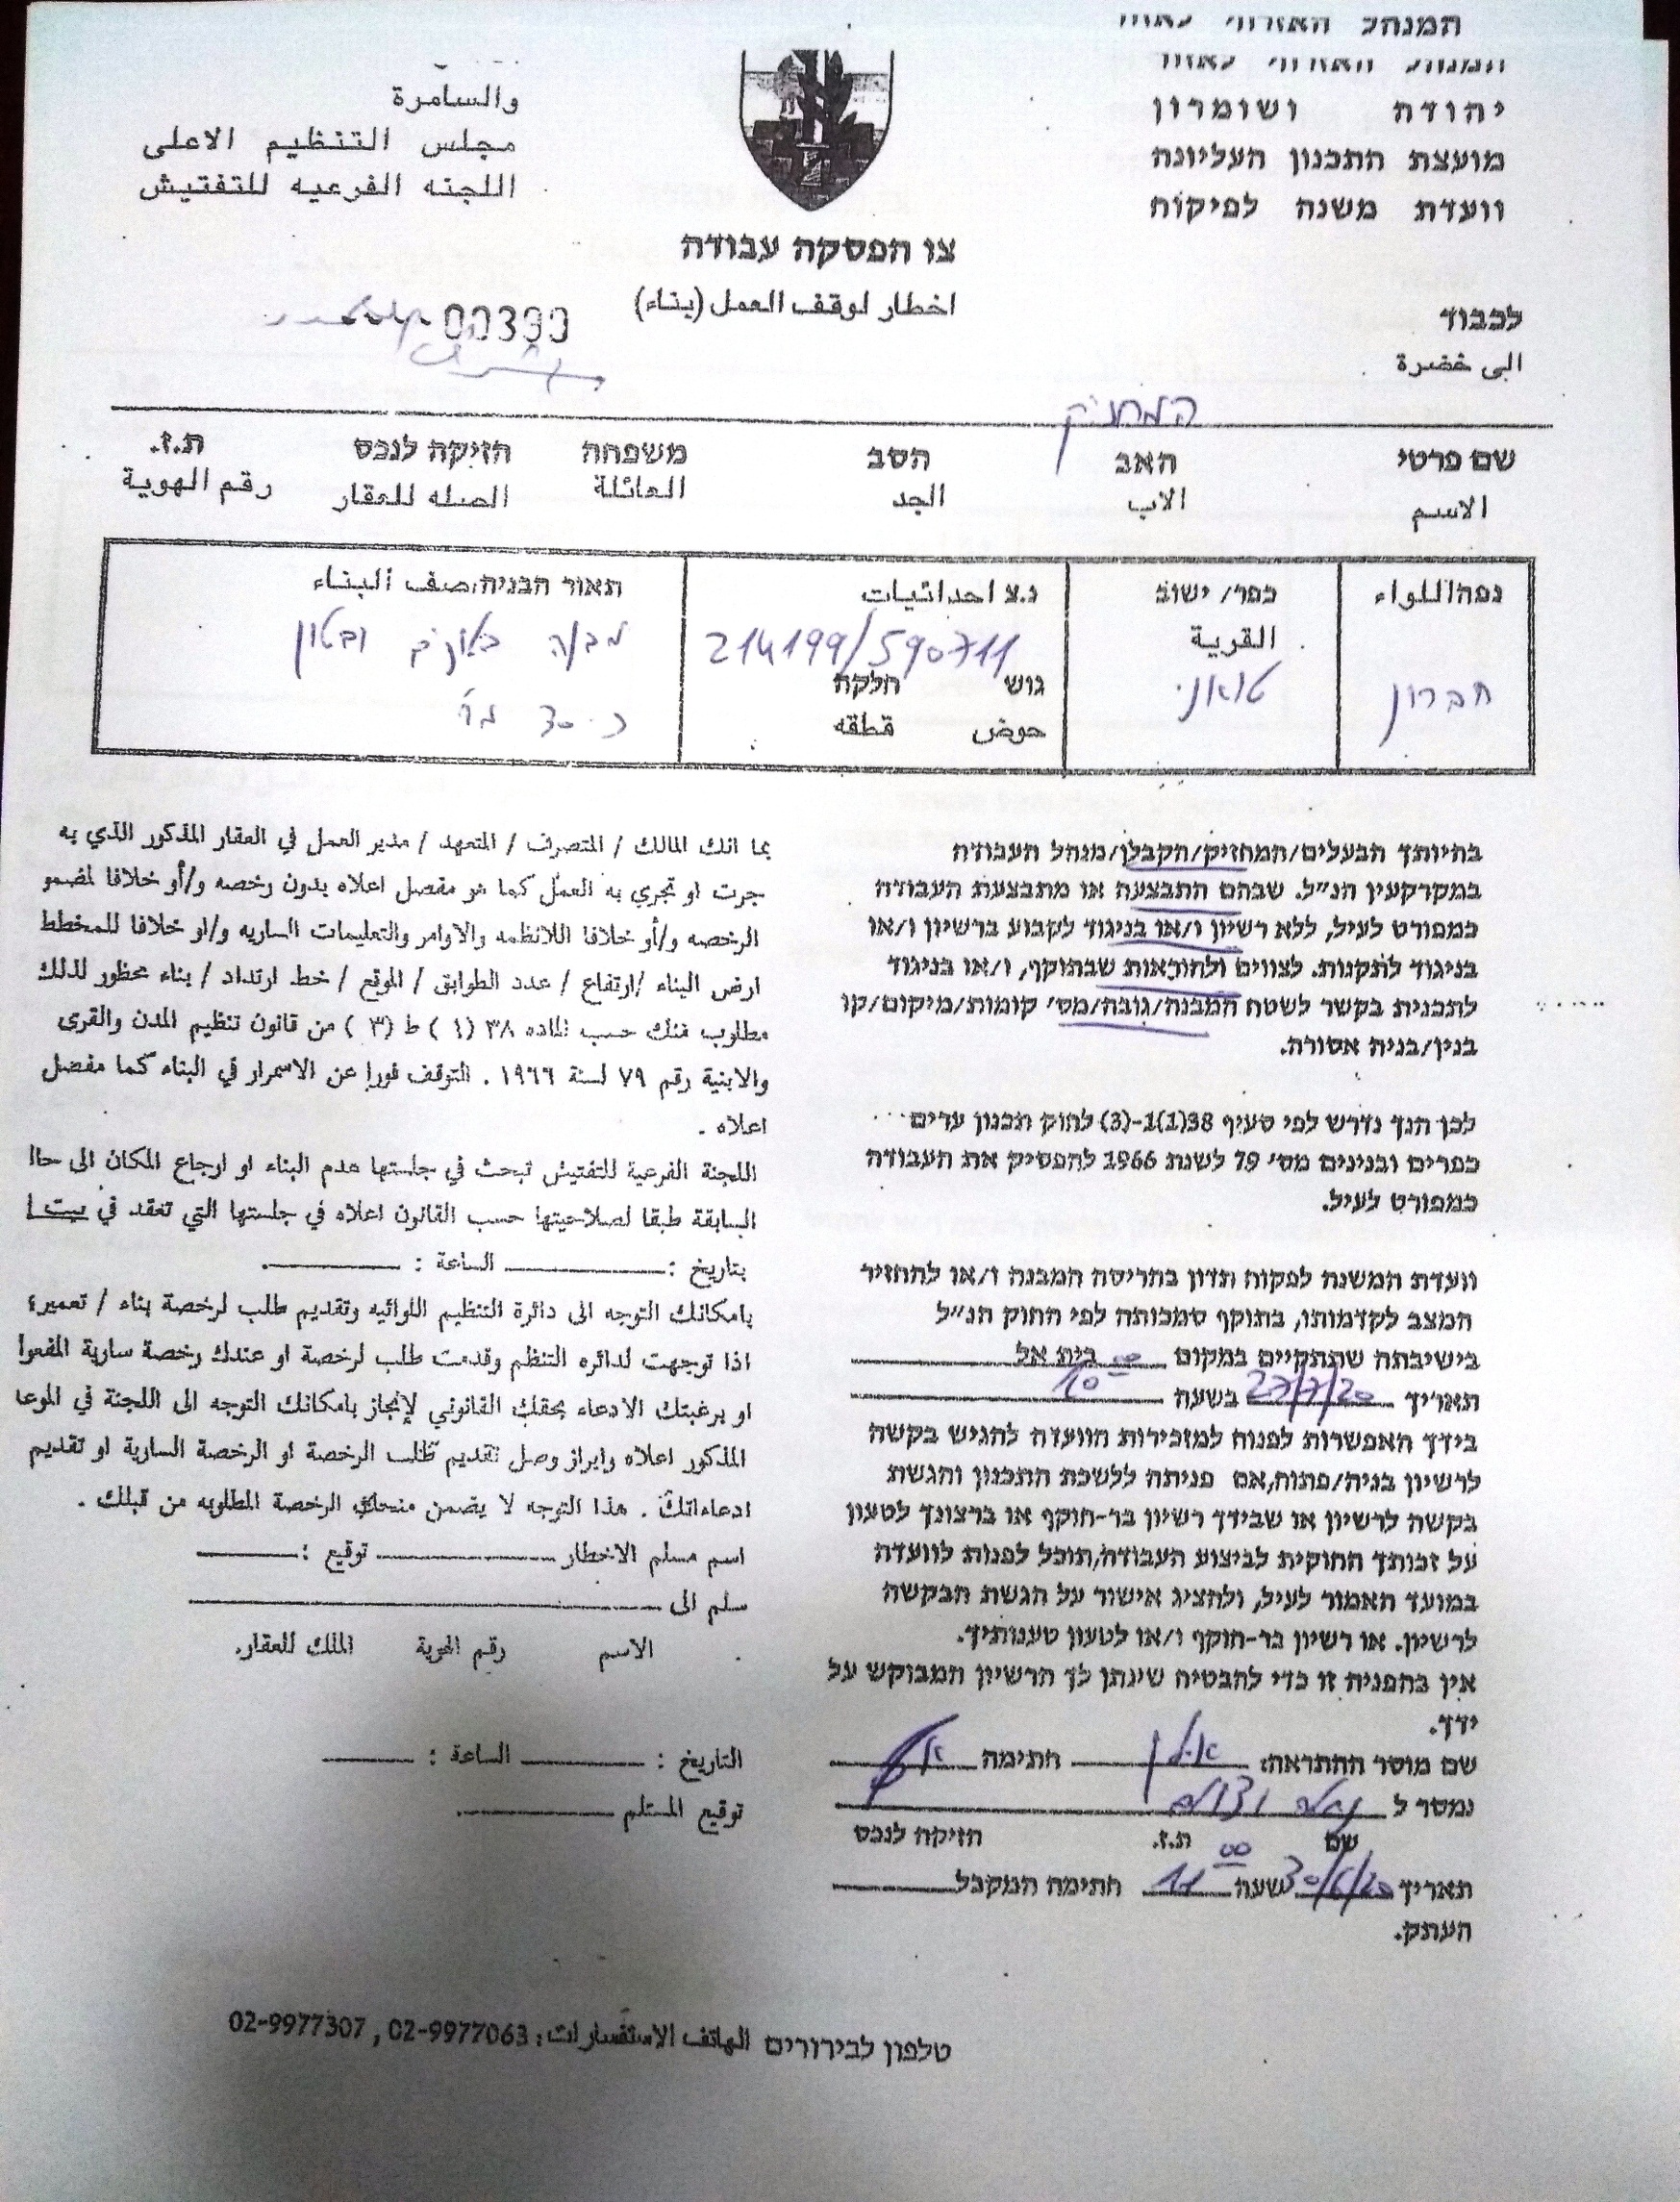 המנהל האזרחי לאזור
המנהל האזרחי לאזור
יהודה ושומרון
מועצת התכנון העליונה
וועדת משנה לפיקוח
والسامرة
مجلس التنظيم الاعلى
اللجنه الفرعيه للتفتيش
צו הפסקה עבודה
اخطار لوقف العمل (بناء)
00390
לכבוד
الى خضرة
המחזיק
שם פרטי האב הסב משפחה חזיקה לנכס ת.ז.
الاسم الاب الجد العائلة الصله للعقار رقم الهوية
נפה/اللواء
חברון
כפר/ ישוב
القرية
טואני
נ.צ احداثيات
214199/590711
גוש חלקה
حوض قطقه
תאור הבניה/صف البناء
מבנה בלוקים ובטון
כ-30 מ"ר
בהיותך הבעלים/המחזיק/הקבלן/מנהל העבודה
במקרקעין הנ״ל. שבהם התבצעה או מתבצעת העבודה
כמפורט לעיל, ללא רשיון ו/או בניגוד לקבוע ברשיון ו/או
בניגוד לתקנות. לצווים ולהוראות שבתוקף, ו/או בניגוד
לתכנית בקשר לשטח המבנה/גובה/מס׳ קומות/מיקום/קו
בנין/בניה אסורה.
לכן הנך נדרש לפי סעיף 38(1)1-(3) לחוק תכנון ערים
כפרים ובנינים מס׳ 79 לשנת 1966 להפסיק את העבודה
כמפורט לעיל.
וועדת המשנה לפקוח תדון בהריסה המבנה ו/או להחזיר
המצב לקדמותו, בתוקף סמכותה לפי החוק הנ״ל
בישיבתה שתתקיים במקום בית אל
תאריך 27/7/20 בשעה 10 00
בידך האפשרות לפנות למזכירות הוועדה להגיש בקשה
לרשיון בניה/פתוח,אם פניתה ללשכת התכנון והגשת
בקשה לרשיון או שבידך רשיון בר-חוקף או ברצונך לטעון
על זכותך החוקית לביצוע העבודה,תוכל לפנות לוועדה
במועד האמור לעיל, ולהציג אישור על הגשת הבקשה
לרשיון. או רשיון בר-חוקף ו/או לטעון טענותיך.
אין בהפניה זו כדי להבטיח שינתן לך הרשיון המבוקש על
ידך.
שם מוסר ההתראה: חתימה
נמסר ל
שם ת.ז. חזיקה לנכס
תאריך 30/6/20 שעה 11 00 חתימה המקבל
העתק.
بما انك المالك / المتصرف / المتعهد / مدير العمل في العقار المذكور الذي به
جرت او تجري به العمل كما هو مفصل اعلاه بدون رخصه و/أو خلافا لمضمو
الرخصه و/أو خلافا اللانظمه والاوامر والتعليمات الساريه و/او خلافا للمخطط
ارض البناء /ارتفاع / عدد الطوابق / الموقع / خط ارتداد / بناء محظور لذلك
مطلوب منك حسب الماده ٣٨ (١ ) ط (٣ ) من قانون تنظيم المدن والقرى
والابنية رقم ٧٩ لسنة ١٩٦٦ . التوقف فورا عن الاسمرار في البناء كما مفصل
اعلاه .
اللجنة الفرعية للتفتيش تبحث في جلستها هدم البناء او ارجاع المكان الى حاا
السابقة طبقا لصلاحيتها حسب القانون اعلاه في جلستها التي تعقد في بيت ا
بتاريخ : الساعة :
بامكانك التوجه الى دائرة التنظيم اللوائيه وتقديم طلب لرخصة بناء / تعمير؛
اذا توجهت لدائره التنظم وقدمت طلب لرخصة او عندك رخصة سارية المفعوا
او برغبتك الادعاء بحقك القانوني لإنجاز بامكانك التوجه الى اللجنة في الموعا
المذكور اعلاه وابراز وصل تقديم طلب الرخصة او الرخصة السارية او تقديم
ادعاءاتك . هذا التوجه لا يضمن منحك الرخصة المطلوبه من قبلك .
اسم مسلم الاخطار توقيع :
سلم الى
الاسم رقم الهوية الملك للعقار.
التاريخ : الساعة :
توقيع المستلم
טלפון לבירורים الهاتف الاستفسارات: 02-9977063 , 02-9977307